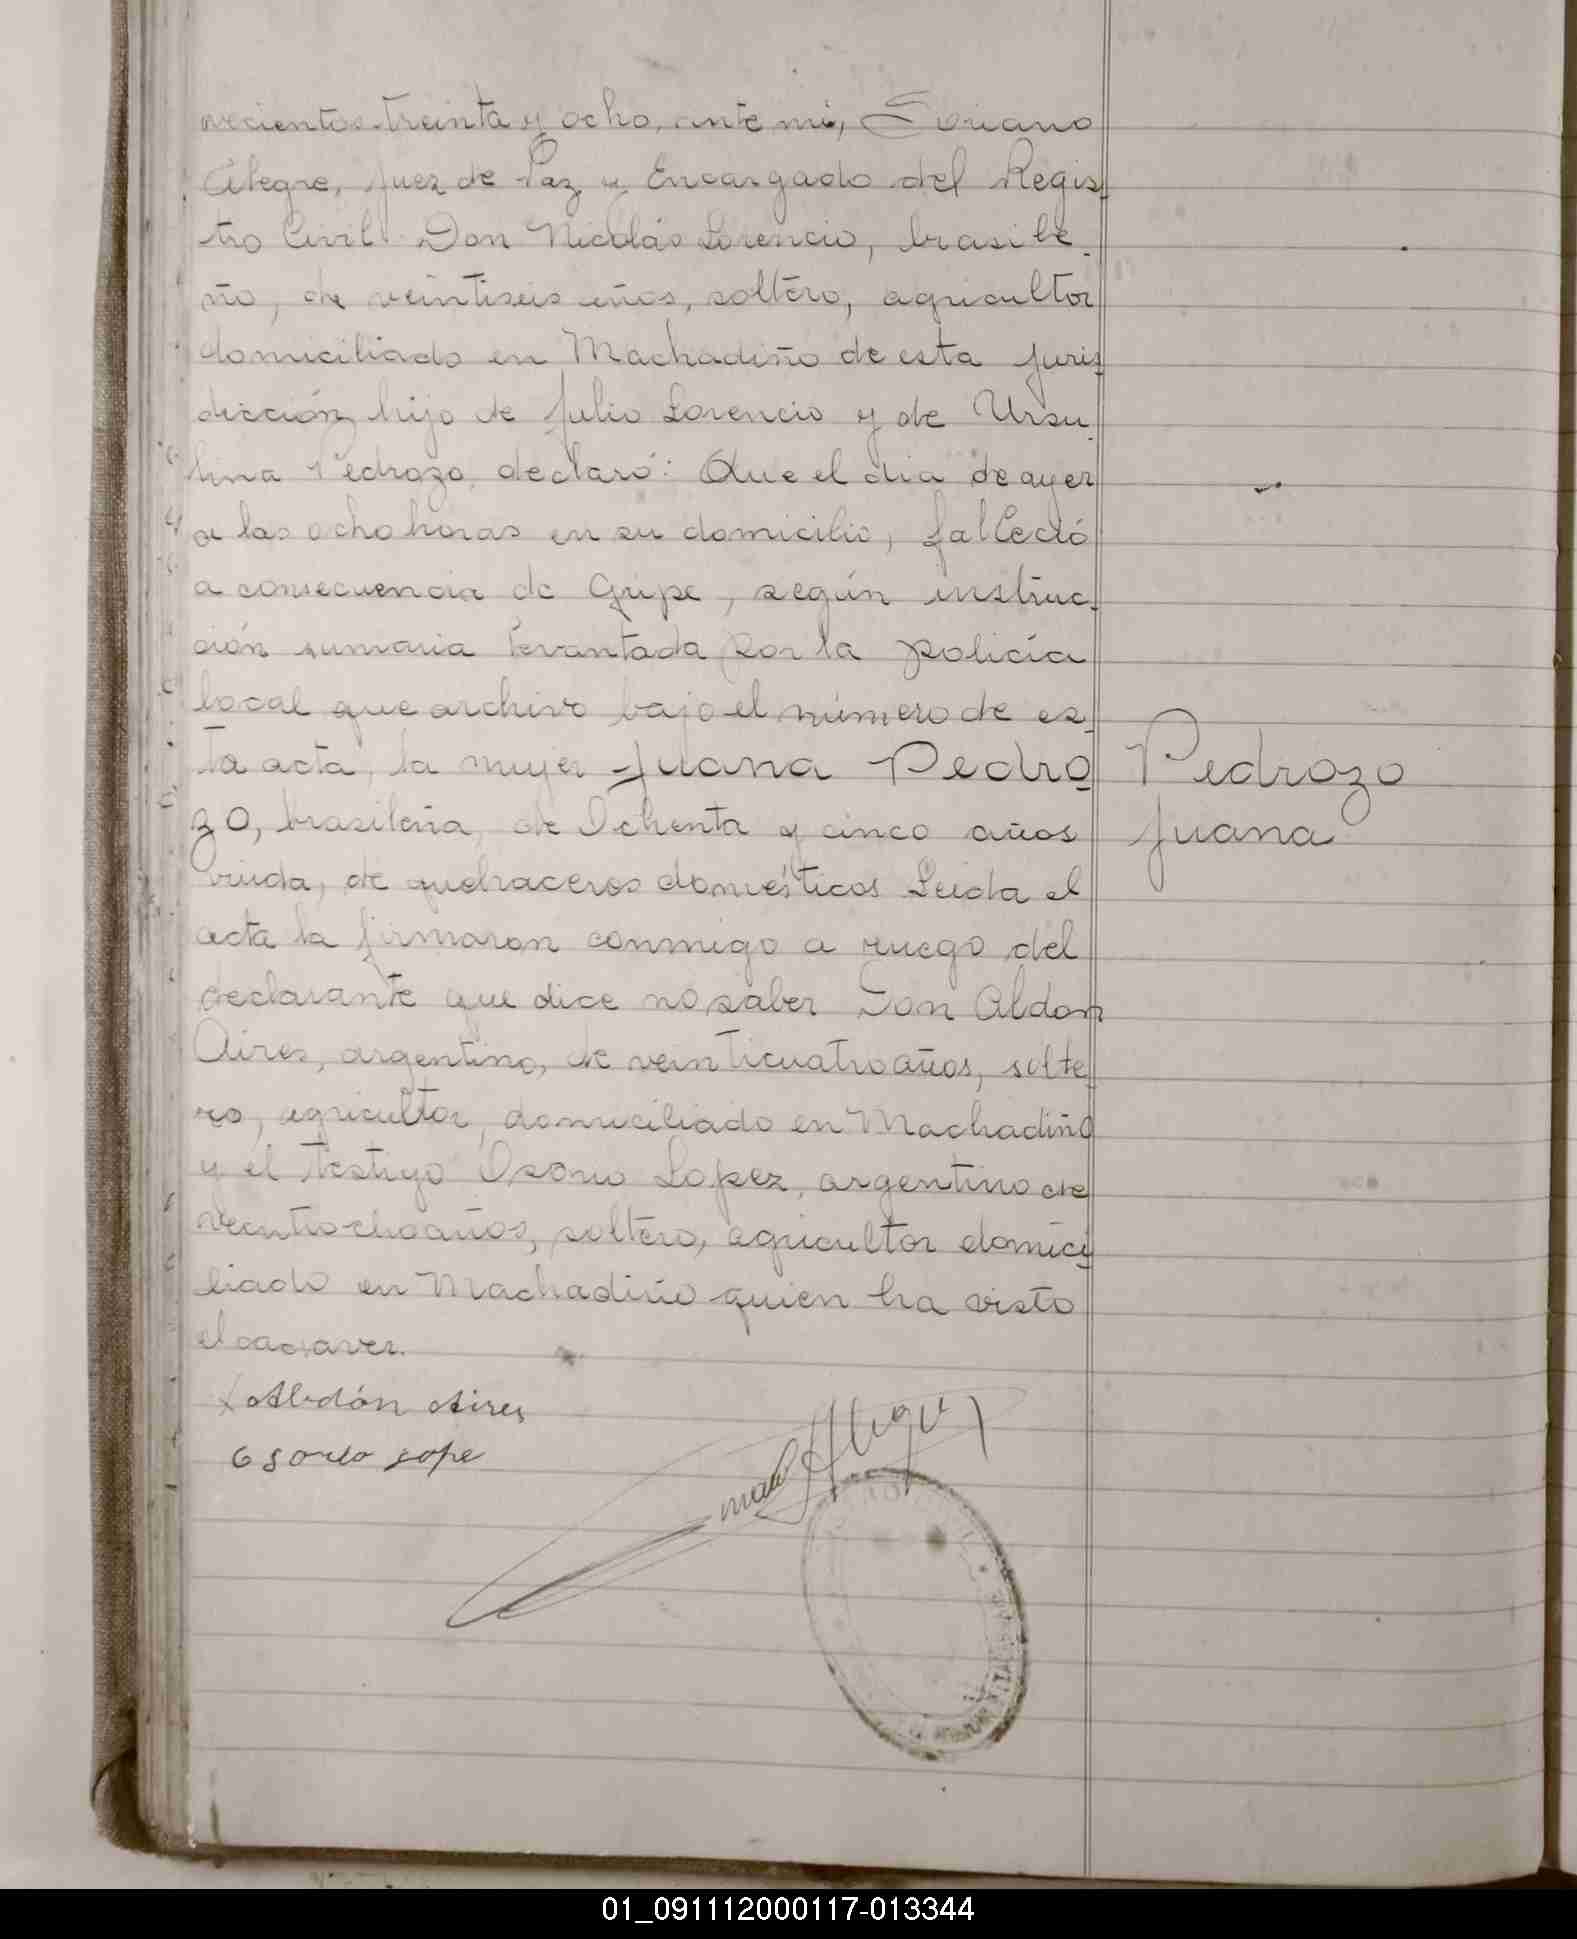 vecientos treinta y ocho, ante mi,
Alegre, Juez de Paz y Encargado del Regis-
tro Civil. Don Nicolás Lorencio, brasile-
ño, de veintiseis años, soltero, agricultor
domiciliado en Machadiño de esta juris-
dicción hijo de Julio Lorencio y de Ursu-
lina Pedrozo, declaró: Que el dia de ayer
a las ocho horas en su domicilio, falleció
a consecuencia de Gripe, según instruc-
ción sumaria levantada por la policía
local que archivo bajo el número de es-
ta acta, la mujer Juana Pedro-
zo, brasileña, de Ochenta y cinco años
viuda, de quehaceros domésticos Leida el
acta la firmaron conmigo a ruego del
declarante que dice no saber Don Abdon
Aires, argentino, de veinticuatro años, solte-
ro, agricultor, domiciliado en Machadiño
y el testigo Osorio Lopez, argentino de
veintiocho años, soltero, agricultor domici-
liado en Machadiño quien ha visto
el cadaver.
Pedrozo
Juana
Abdón Aires
Osorio Lope
Alegre
01_091112000117-013344